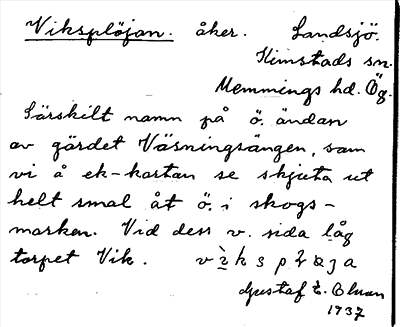 Viksplöjan. åker. Landsjö.
Kimstads sn.
Memmings hd. Ög.
Särskilt namn på ö. ändan
av gärdet Väsningsängen, som
vi å ek-kartan se skjuta ut
helt smal åt ö. i skogs-
marken. Vid dess v. sida låg
torpet Vik.
Gustaf E.
1937